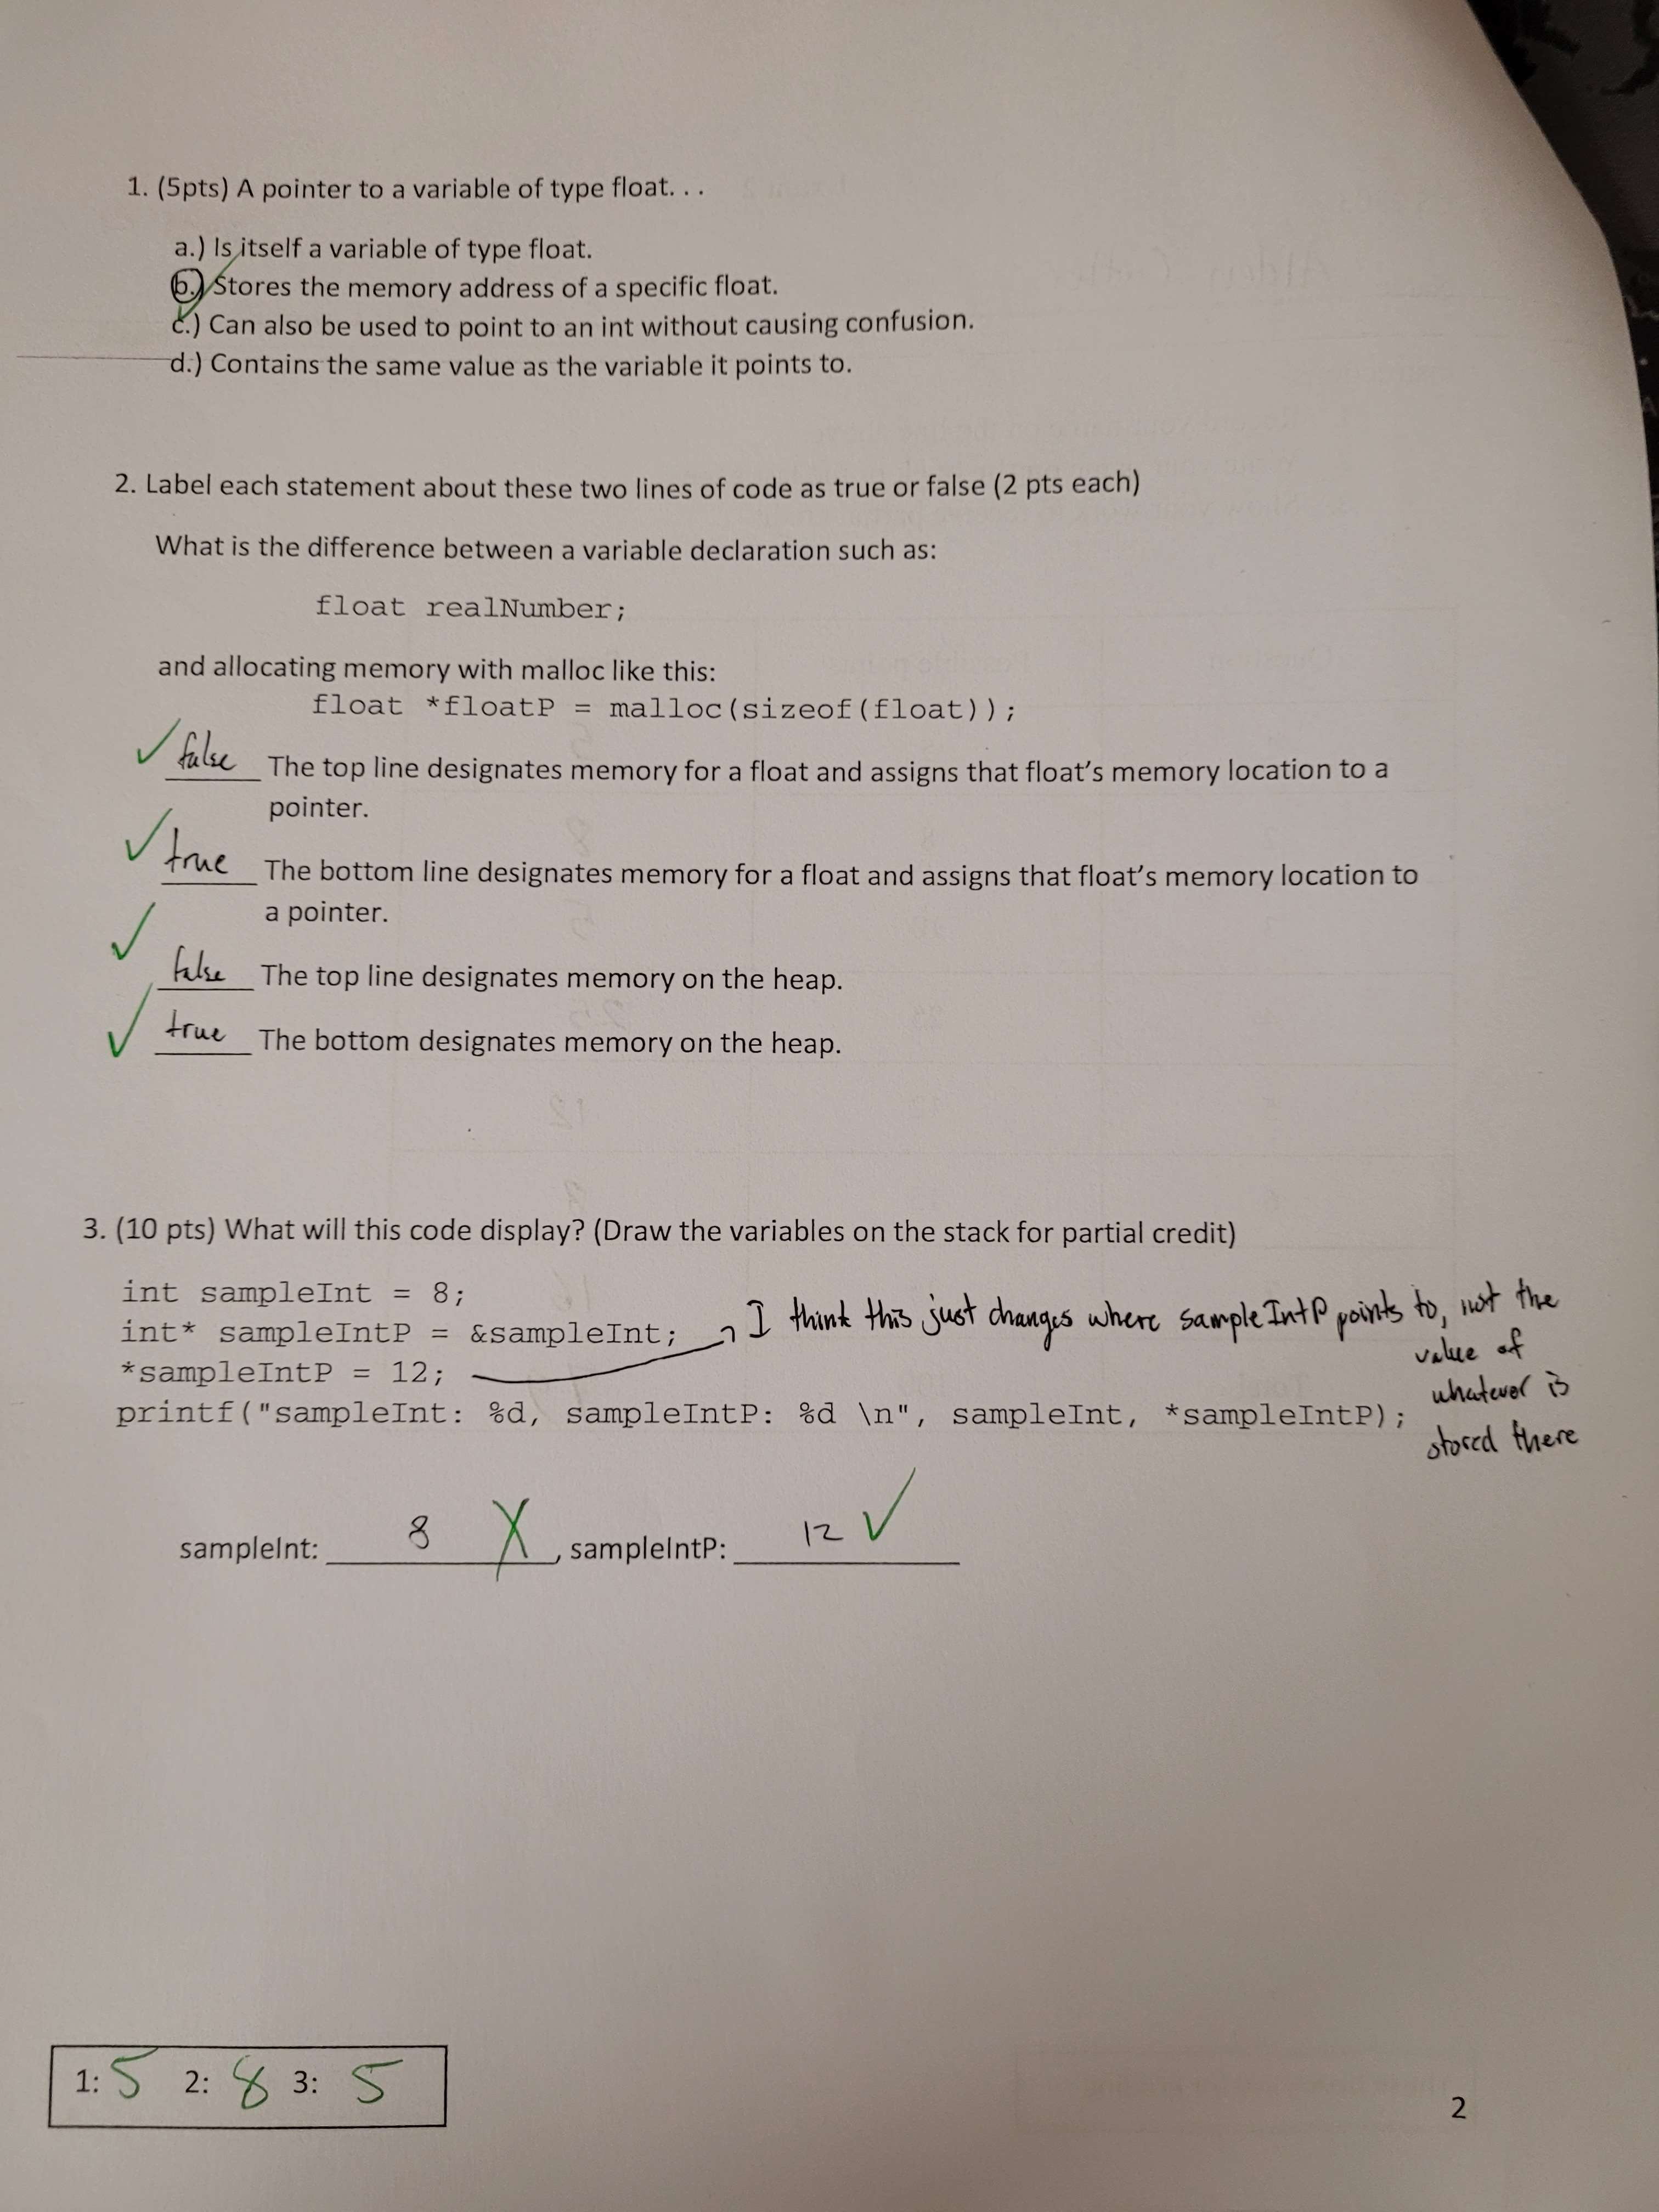 1. (5pts) A pointer to a variable of type float. . .
a.) Is itself a variable of type float.
b.) Stores the memory address of a specific float.
c.) Can also be used to point to an int without causing confusion.
d.) Contains the same value as the variable it points to.
2. Label each statement about these two lines of code as true or false (2 pts each)
What is the difference between a variable declaration such as:
float realNumber;
and allocating memory with malloc like this:
float *floatP = malloc(sizeof(float));
false The top line designates memory for a float and assigns that float's memory location to a
pointer.
true The bottom line designates memory for a float and assigns that float's memory location to
a pointer.
false The top line designates memory on the heap.
true The bottom designates memory on the heap.
3. (10 pts) What will this code display? (Draw the variables on the stack for partial credit)
int sampleInt = 8;
int* sampleIntP = &sampleInt;
*sampleIntP = 12;
printf("sampleInt: %d, sampleIntP: %d \n", sampleInt, *sampleIntP);
I think this just changes where sampleIntP points to, not the
value of
whatever is
stored there
sampleInt: 8 X, sampleIntP: 12
1: 5 2: 8 3: 5
2